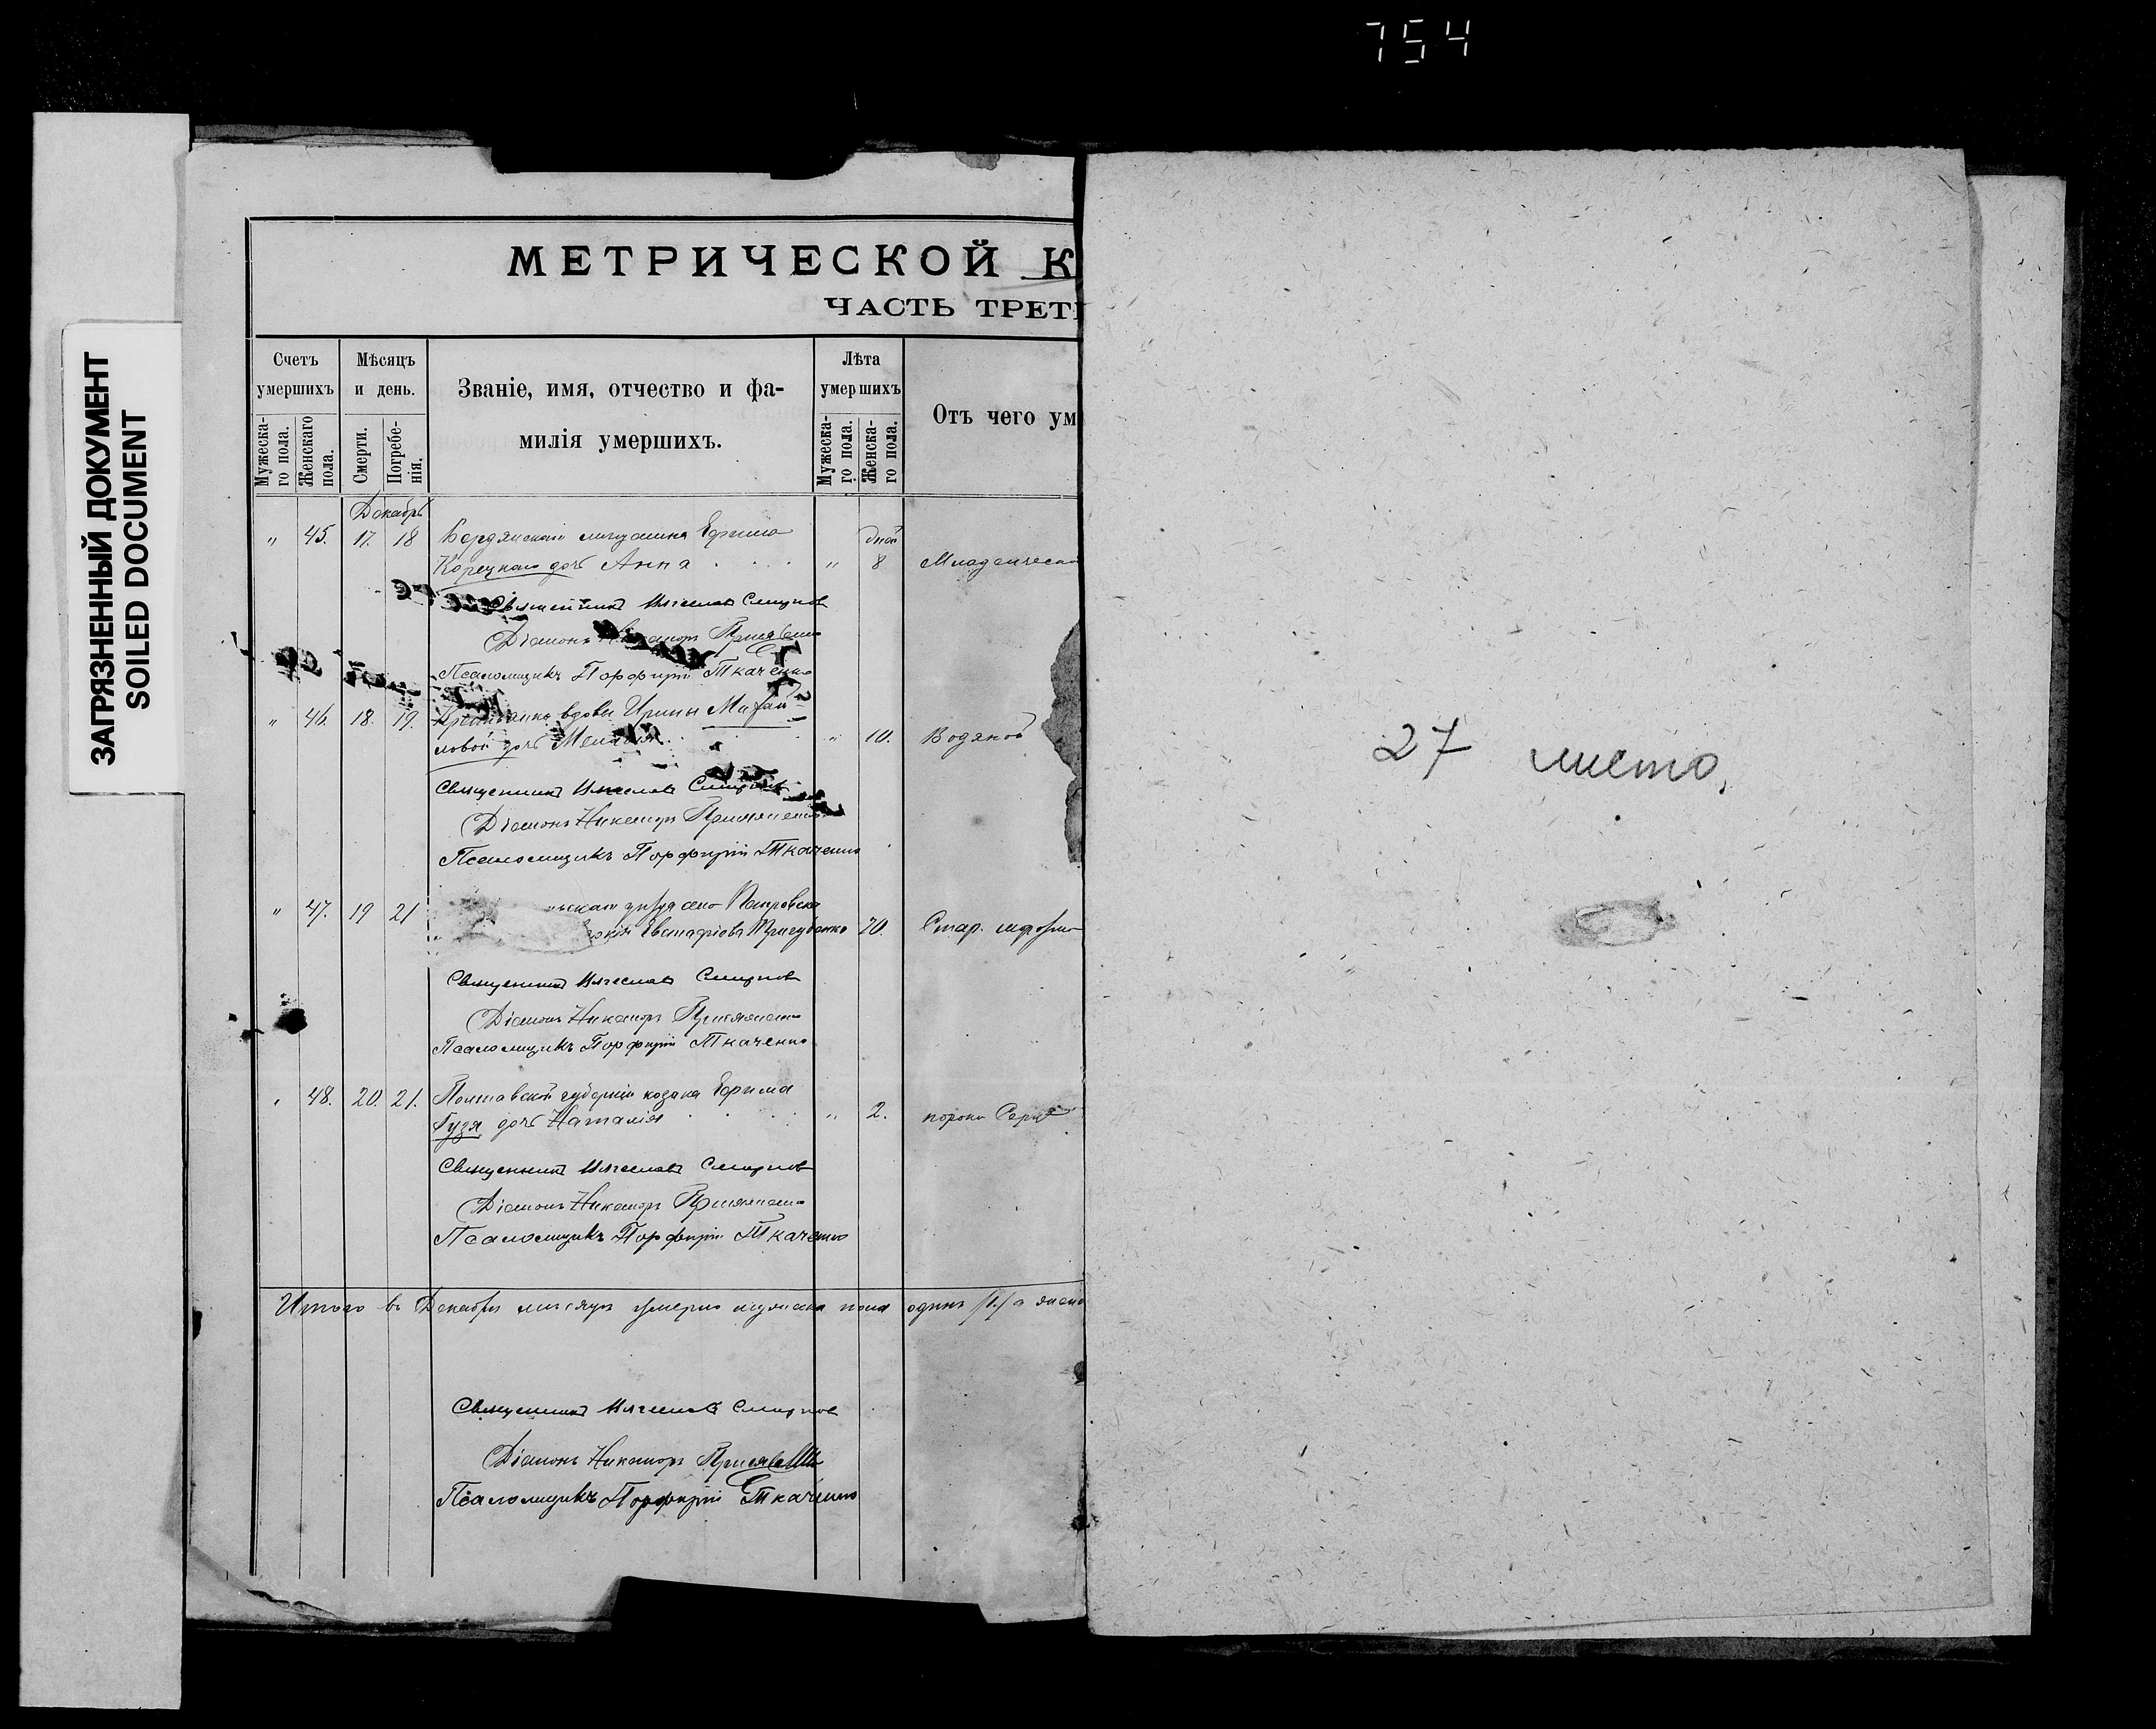 754
ЗАГРЯЗНЕННЫЙ ДОКУМЕНТ
SOILED DOCUMENT
МЕТРИЧЕСКОЙ К
ЧАСТЬ ТРЕТЬ
Счетъ умершихъ
Мужеска-го пола.
Женскаго пола.
Мѣсяцъ и день.
Смерти.
Погребе-нія.
Званіе, имя, отчество и фа-
милія умершихъ.
Лѣта умершихъ
Мужеска-го пола.
Женска-го пола.
Отъ чего ум
Декабрь
" 45. 17. 18 Бердянскаго мѣщанина Ефима дней
Корецкаго дочь Анна " 8 Младенческ
Священникъ Вячеславъ Смирнов
Діаконъ
Псаломщикъ Порфирій Ткаченко
" 46. 18. 19. вдовы Ирины Михай-
ловой дочь " 10. Водяной
Священникъ Вячеславъ
Діаконъ Никаноръ
Псаломщикъ Порфирій Ткаченко
" 47. 19 21 село
Евстафіева 70. Стар.
Священникъ Вячеславъ Смирнов
Діаконъ Никаноръ
Псаломщикъ Порфирій Ткаченко
" 48. 20. 21. Полтавской губерніи козака Ефима
Гузя дочь Наталія " 2. порока
Священникъ Вячеславъ Смирнов
Діаконъ Никаноръ
Псаломщикъ Порфирій Ткаченко
Итого въ Декабрѣ мѣсяцѣ умерло мужска пола одинъ /1/ а
Священникъ Вячеславъ Смирнов
Діаконъ Никаноръ
Псаломщикъ Порфирій Ткаченко
27 листо,